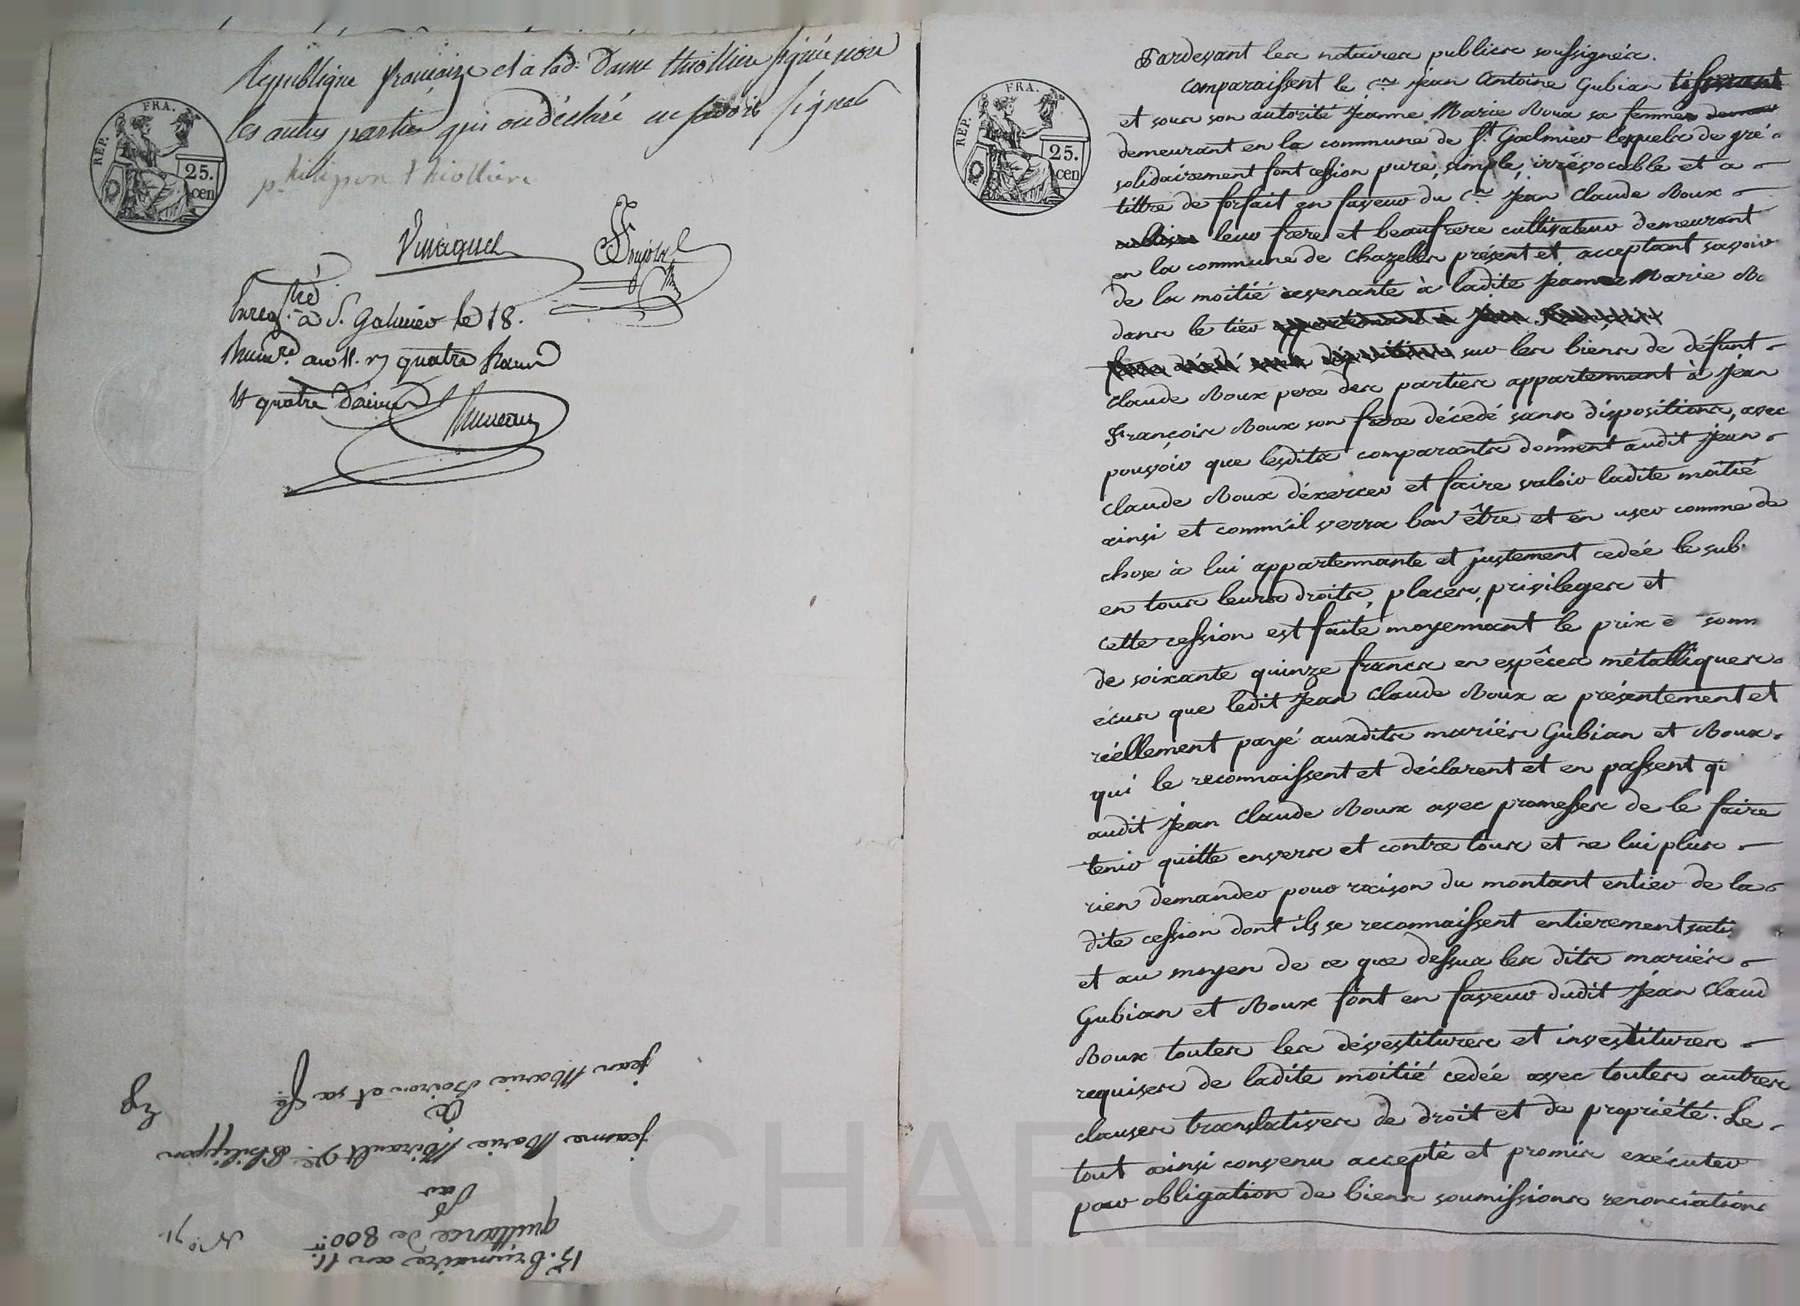 République française et à lad. Dame thiollière signée non
les autres parties qui ont déclaré ne savoir signer
REP. FRA.
25.
cen
philipon thiollière
Enreg.tré à S. Galmier le 18.
Brum.re an 11. r quatre francs
et quatre décimes
jean Marie Boiron et sa f.e
Jeanne Marie Mirault v.e Philippon
par
quittance de 800.tt
N.o 71.
15. Brumaire an 11.
Pardevant les notaires publics soussignés.
REP. FRA.
25.
cen
comparaissent le c.en Jean Antoine Gubian
et sous son autorité Jeanne Marie Roux sa femme
demeurant en la commune de S.t Galmier lesquels de gré
solidairement font cession pure, simple, irrévocable et a
tittre de forfait en faveur du c.en Jean Claude Roux
leur frere et beaufrere cultivateur demeurant
en la commune de Chazelles présent et acceptant savoir
de la moitié revenante à ladite Jeanne Marie
dans le tier
sur les biens de défunt
Claude Roux pere des parties appartennant à Jean
François Roux son frere décédé sans dispositions, avec
pouvoir que lesdits comparants donnent audit Jean
Claude Roux d'éxercer et faire valoir ladite moitié
ainsi et comm'il verra bon être et en user comme de
chose à lui appartennante et justement cedée le sub
en tous leurs droits, places, privileges et
cette cession est faite moyennant le prix
de soixante quinze francs en espêces métalliques
écus que ledit Jean Claude Roux a présentement et
réellement payé auxdits mariés Gubian et Roux
qui le reconnaissent et déclarent et en passent
audit Jean Claude Roux avec promesses de le faire
tenir quitte envers et contre tous et ne lui plus
rien demander pour raison du montant entier de la
dite cession dont ils se reconnaissent entierement
et au moyen de ce que dessus les dits mariés
Gubian et Roux font en faveur dudit Jean Claud
Roux toutes les dévestitures et investitures
requises de ladite moitié cedée avec toutes autres
clauses translatives de droit et de propriété. Le
tout ainsi convenu accepté et promis exécuter
par obligation de biens soumissions renonciations